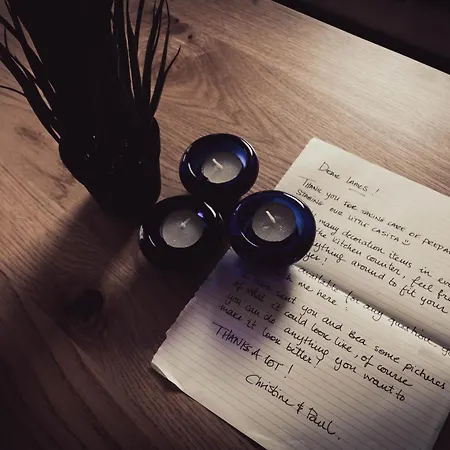 Dear Ladies!
Thank you for taking care of prepar
staging our little casita ☺
many decoration items in
the kitchen counter, feel fr
anything around to fit your
!
available for any question
me here!
sent you and Bea some pictures
of what it could look like, of course
you can do anything you want to
make it look better!
THANKS A LOT!
Christine & Paul.